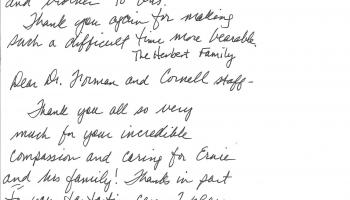 and
Thank you again for making
such a difficult time more bearable.
The Herbert Family
Dear Dr. Norman and Cornell staff-
Thank you all so very
much for your incredible
compassion and caring for Ernie
and his family! Thanks in part
to you